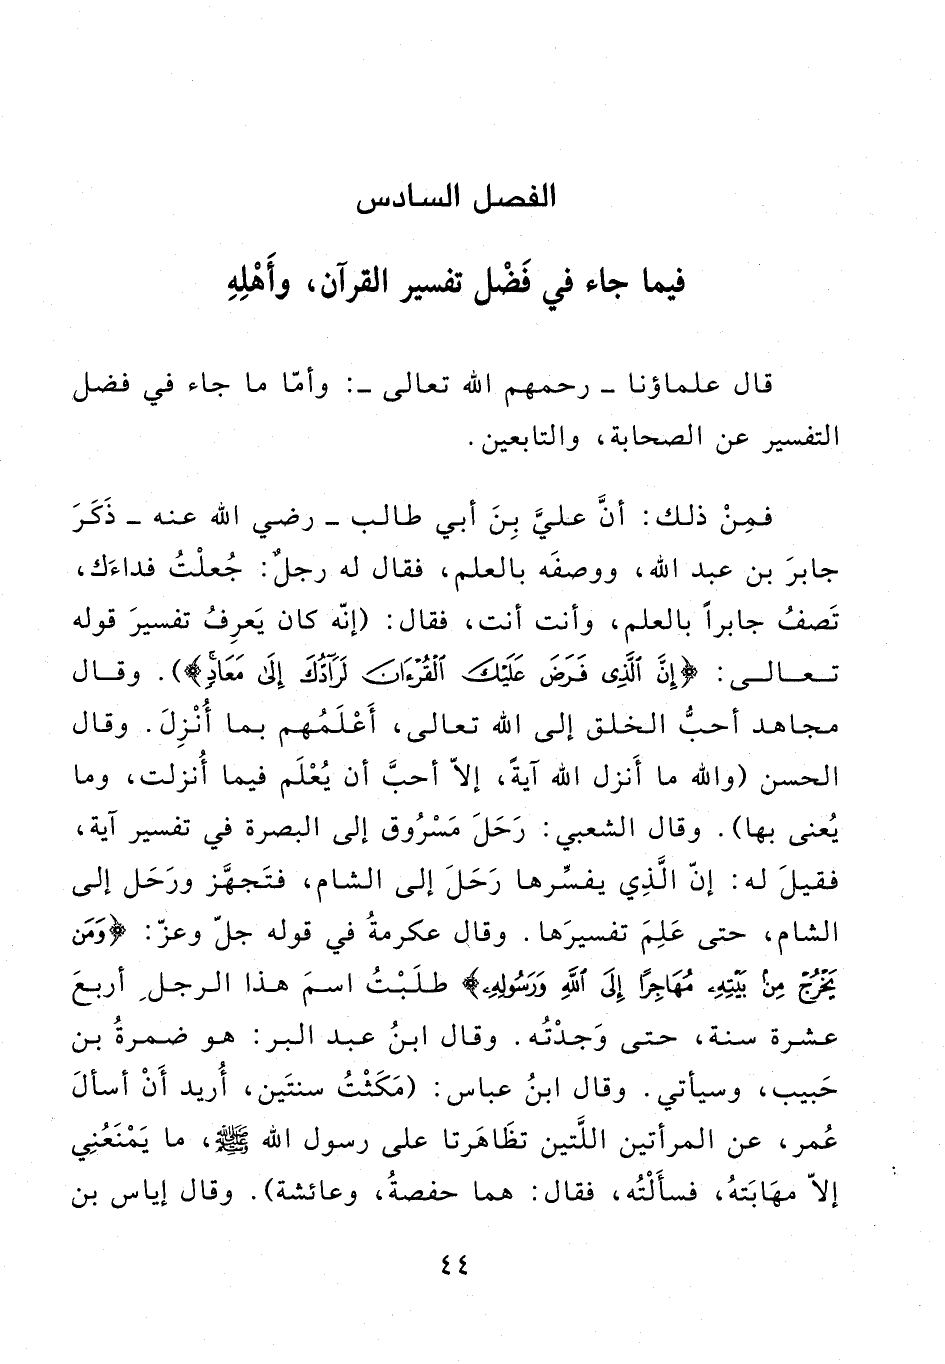 الفصل السادس
فيما جاء في فَضْل تفسير القرآن، وأَهْلِهِ
قال علماؤنا ـ رحمهم الله تعالى ـ: وأمّا ما جاء في فضل
التفسير عن الصحابة، والتابعين.
فمِنْ ذلك: أنَّ عليَّ بِنَ أبي طالب ـ رضي الله عنه ـ ذَكَرَ
جابرَ بن عبد الله، ووصفَه بالعلم، فقال له رجلٌ: جُعلْتُ فداءَك،
تَصفُ جابراً بالعلم، وأنت أنت، فقال: (إنّه كان يَعرِفُ تفسيرَ قوله
تعالى: ﴿إِنَّ ٱلَّذِى فَرَضَ عَلَيْكَ ٱلْقُرْءَانَ لَرَآدُّكَ إِلَىٰ مَعَادٍ﴾). وقال
مجاهد أحبُّ الخلق إلى الله تعالى، أَعْلَمُهم بما أُنْزِلَ. وقال
الحسن (والله ما أَنزل الله آيةً، إلاّ أحبَّ أن يُعْلَم فيما أُنزلت، وما
يُعنى بها). وقال الشعبي: رَحَلَ مَسْرُوق إلى البصرة في تفسير آية،
فقيلَ له: إنّ الَّذِي يفسِّرها رَحَلَ إلى الشام، فتَجهَّز ورَحَل إلى
الشام، حتى عَلِمَ تفسيرَها. وقال عكرمةُ في قوله جلّ وعزّ: ﴿وَمَن
يَخْرُجْ مِنۢ بَيْتِهِۦ مُهَاجِرًا إِلَى ٱللَّهِ وَرَسُولِهِۦ﴾ طلَبْتُ اسمَ هذا الرجل، أربعَ
عشرة سنة، حتى وَجدْتُه. وقال ابنُ عبد البر: هو ضمرةُ بن
حَبيب، وسيأتي. وقال ابنُ عباس: (مَكَثْتُ سنتَين، أُريد أَنْ أسألَ
عُمر، عن المرأتين اللَّتين تظَاهَرتا على رسول الله ﷺ، ما يَمْنَعُنِي
إلاّ مهَابَتهُ، فسألْتُه، فقال: هما حفصةُ، وعائشة). وقال إياس بن
٤٤